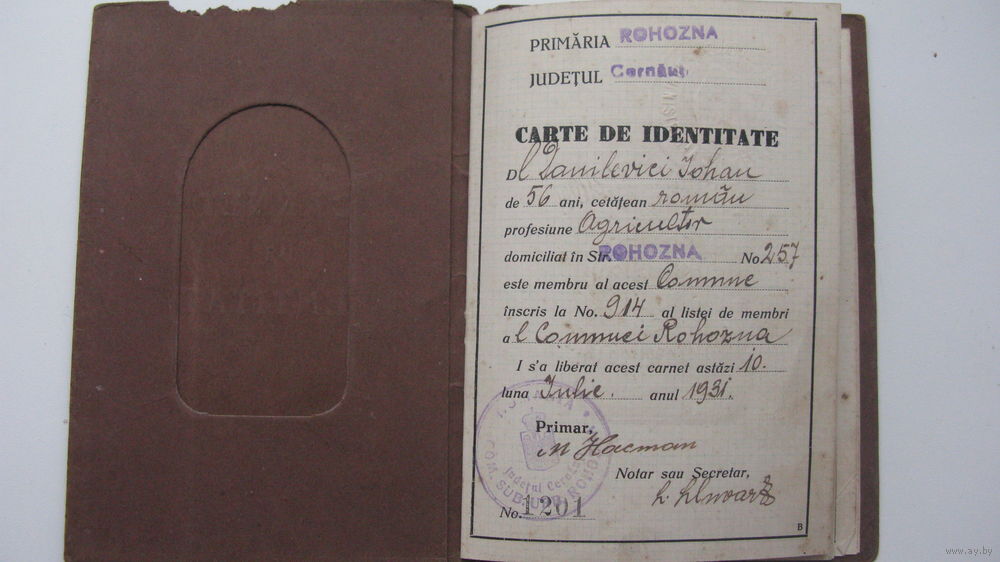 PRIMĂRIA ROHOZNA
JUDEŢUL Cernăuţi
CARTE DE IDENTITATE
Dl Danilevici Johan
de 56 ani, cetăţean român
profesiune Agricultor
domiciliat în Str. ROHOZNA No 257
este membru al acest Comune
înscris la No. 914 al listei de membri
a l Comunei Rohozna
I s'a liberat acest carnet astăzi 10.
luna Iulie. anul 1931.
Primar,
M Hacman
Notar sau Secretar,
No. 1201
COM. SUBURB. ROHOZNA
Judeţul Cernăuţi
B
www.ay.by